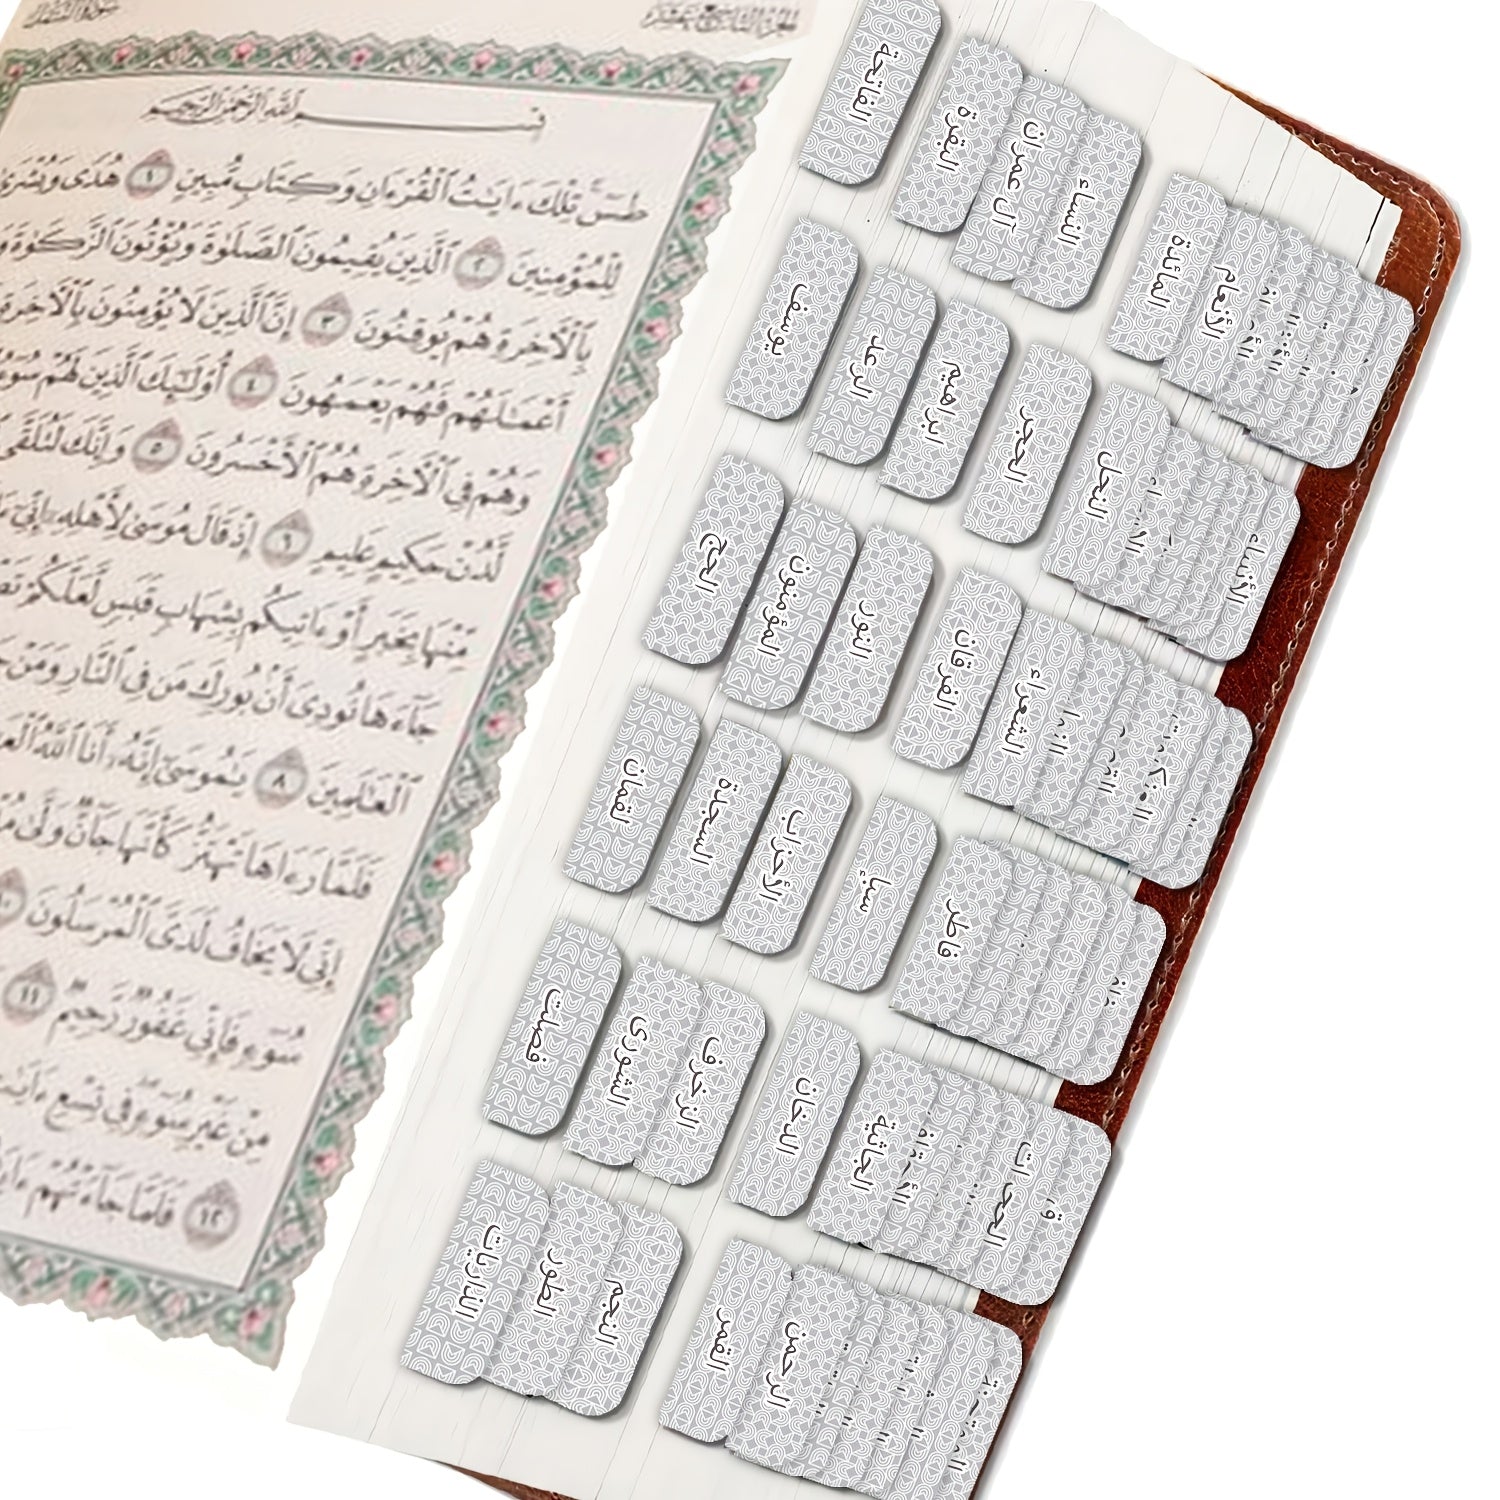 سورة النمل
الجزء التاسع عشر
بسم الله الرحمن الرحيم
طسٓ تِلْكَ ءَايَٰتُ ٱلْقُرْءَانِ وَكِتَابٍ مُّبِينٍ ١ هُدًى وَبُشْرَىٰ
لِلْمُؤْمِنِينَ ٢ ٱلَّذِينَ يُقِيمُونَ ٱلصَّلَوٰةَ وَيُؤْتُونَ ٱلزَّكَوٰةَ
بِٱلْأَخِرَةِ هُمْ يُوقِنُونَ ٣ إِنَّ ٱلَّذِينَ لَا يُؤْمِنُونَ بِٱلْأَخِرَةِ
أَعْمَٰلَهُمْ فَهُمْ يَعْمَهُونَ ٤ أُو۟لَٰٓئِكَ ٱلَّذِينَ لَهُمْ
وَهُمْ فِى ٱلْأَخِرَةِ هُمُ ٱلْأَخْسَرُونَ ٥ وَإِنَّكَ لَتُلَقَّى
لَّدُنْ حَكِيمٍ عَلِيمٍ ٦ إِذْ قَالَ مُوسَىٰ لِأَهْلِهِۦٓ إِنِّىٓ
مِّنْهَا بِخَبَرٍ أَوْ ءَاتِيكُم بِشِهَابٍ قَبَسٍ لَّعَلَّكُمْ
جَآءَهَا نُودِىَ أَنۢ بُورِكَ مَن فِى ٱلنَّارِ وَمَنْ
ٱلْعَٰلَمِينَ ٨ يَٰمُوسَىٰٓ إِنَّهُۥٓ أَنَا ٱللَّهُ
فَلَمَّا رَءَاهَا تَهْتَزُّ كَأَنَّهَا جَآنٌّ وَلَّىٰ
إِنِّى لَا يَخَافُ لَدَىَّ ٱلْمُرْسَلُونَ ١٠
سُوٓءٍ فَإِنِّى غَفُورٌ رَّحِيمٌ ١١
مِنْ غَيْرِ سُوٓءٍ فِى تِسْعِ ءَايَٰتٍ
١٢ فَلَمَّا جَآءَتْهُمْ
الفاتحة
البقرة
آل عمران
النساء
المائدة
الأنعام
يوسف
الرعد
ابراهيم
الحجر
النحل
الأنبياء
الحج
المؤمنون
النور
الفرقان
الشعراء
لقمان
السجدة
الأحزاب
سبأ
فاطر
فصلت
الشورى
الزخرف
الدخان
الجاثية
الحجرات
ق
الذاريات
الطور
النجم
القمر
الرحمن